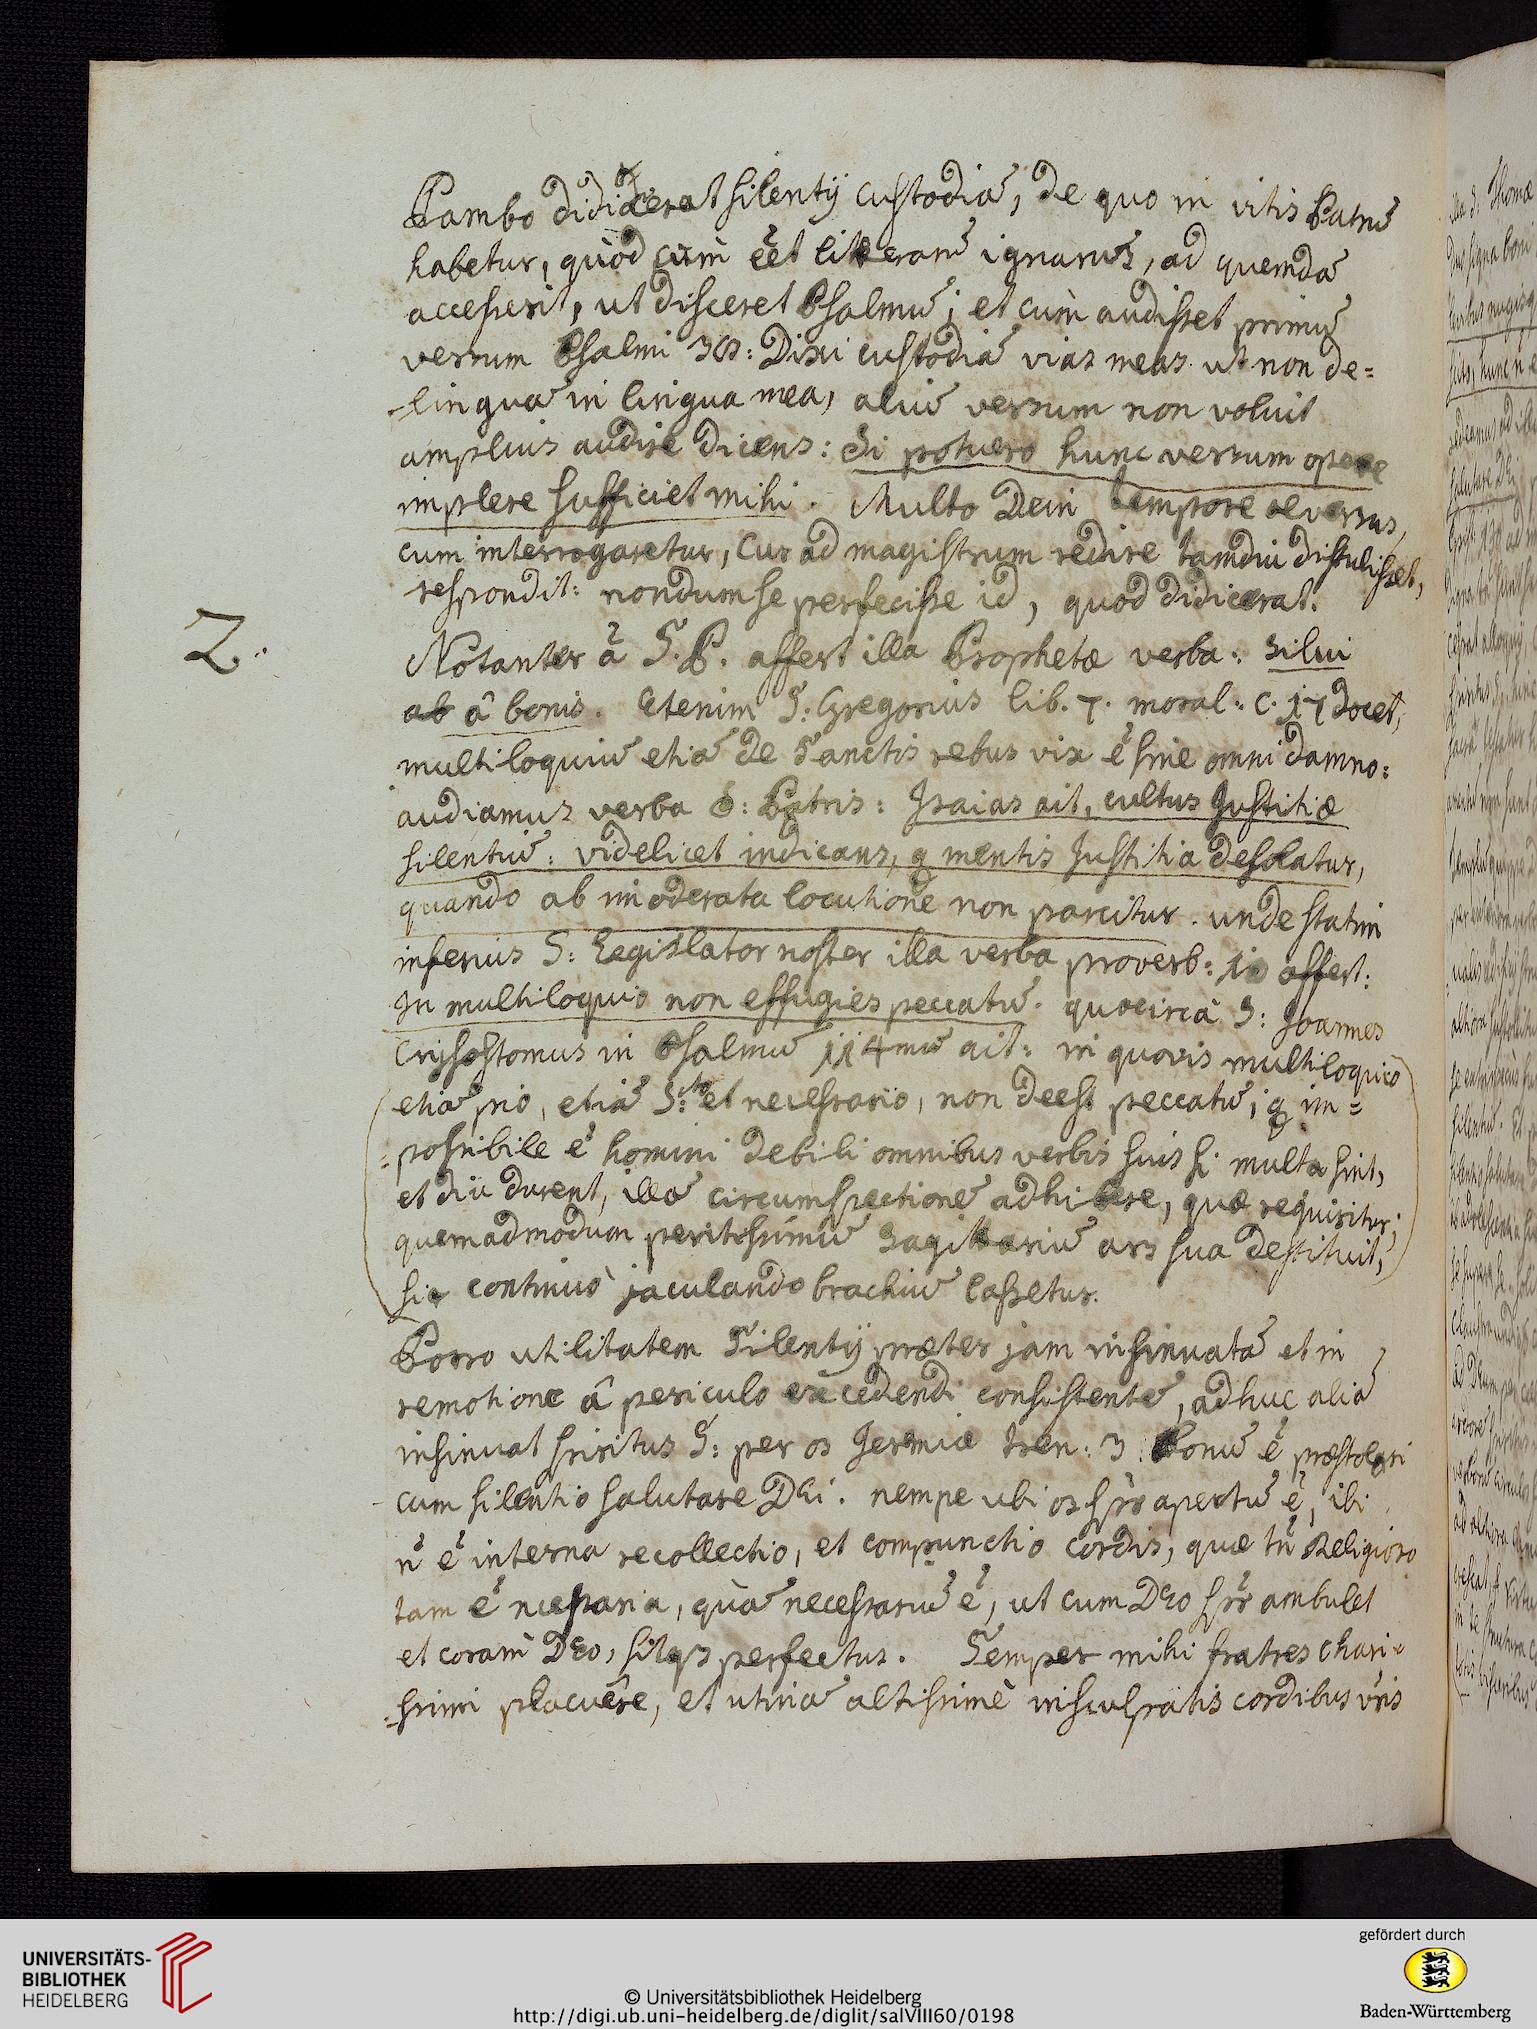 Pambo didicerat silentij custodiã, de quo in vitis Patrũ
habetur, quòd cùm eẽt literarũ ignarus, ad quemdã
accesserit, ut disceret Psalmũ; et cùm audisset primũ
versum Psalmi 38: Dixi custodiã vias meas ut non de=
=linquã in lingua mea, aliũ versum non voluit
amplius audire dicens: Si potuero hunc versum opere
implere sufficiet mihi. Multo Dein tempore reversus,
cum interrogaretur, cur ad magistrum redire tamdiu distulisset,
respondit: nondum se perfecisse id, quod didicerat.
2. Notanter à S. P. affert illa Prophetæ verba: Silui
ab â bonis. Etenim S: Gregorius lib. 7. moral: c. 17 docet,
multiloquiũ etiã de Sanctis rebus vix ẽ sine omni damno:
audiamus verba S: Patris: Isaias ait, cultus Justitiæ
silentiũ: videlicet indicans, q mentis Justitia desolatur,
quando ab imoderata locutione non parcitur. unde statim
inferius S: Legislator noster illa verba proverb: 10 affert:
In multiloquio non effugies peccatũ. quocirca S: Joannes
Crisostomus in Psalmũ 114mũ ait: in quovis multiloquio
etiã pio, etiã S:to et necessario, non deest peccatũ; q im=
=possibile ẽ homini debili omnibus verbis suis si multa sint,
et diu durent, illã circumspectionẽ adhibere, quæ requiritur;
quemadmodum peritissimũ Sagittariũ ars sua destituit,
si continuò jaculando brachiũ lassetur.
Porro utilitatem Silentij præter jam insinuatã et in
remotione â periculo excedendi consistentẽ, adhuc aliã
insinuat spiritus S: per os Jeremiæ tren: 3. Bonũ ẽ præstolari
cum silentio salutare Dei. nempe ubi os spr apertũ ẽ, ibi
ñ ẽ interna recollectio, et compunctio cordis, quæ tñ Religioso
tam ẽ necessaria, quã necessariũ ẽ, ut cum Deo spr ambulet
et coram Deo, sitqz perfectus. Semper mihi fratres chari=
=ssimi placuêre, et utinã altissimè insculpatis cordibus vris
UNIVERSITÄTS-
BIBLIOTHEK
HEIDELBERG
© Universitätsbibliothek Heidelberg
http://digi.ub.uni-heidelberg.de/diglit/salVIII60/0198
gefördert durch
Baden-Württemberg